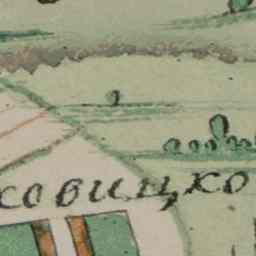 ковицко